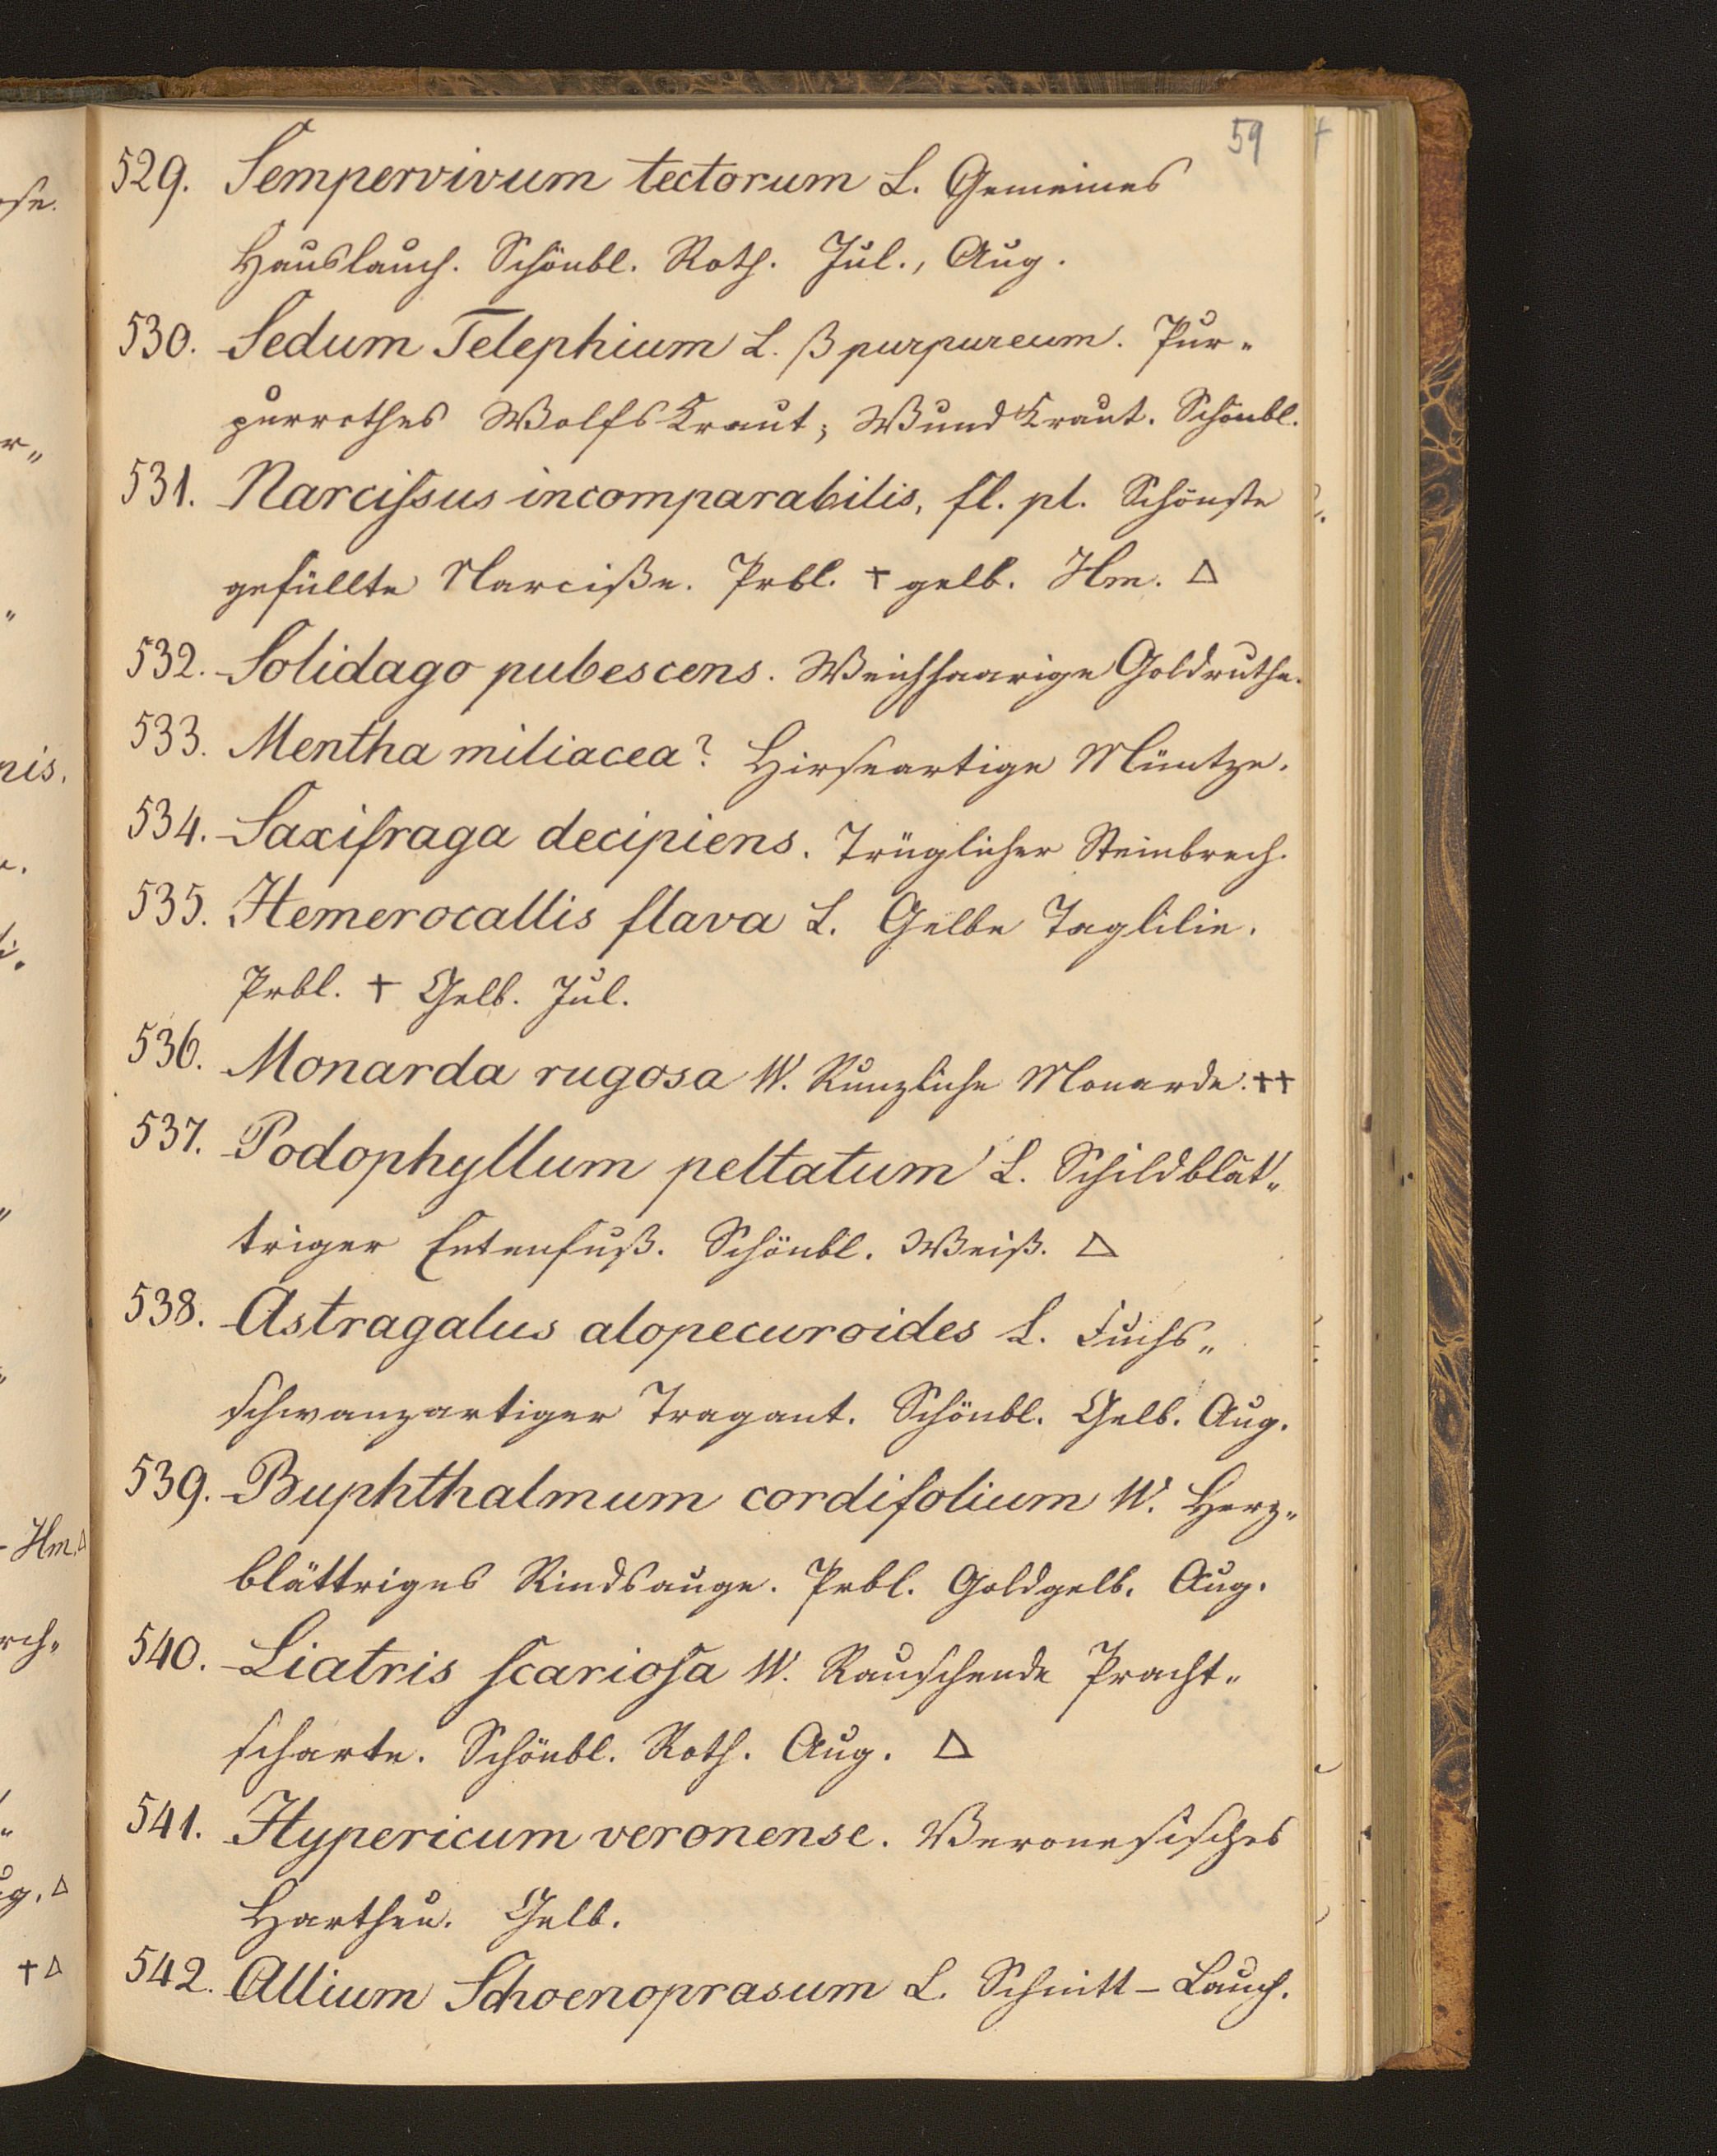 59
529. Sempervivum tectorum L. Gemeines
Hauslauch. Schönbl. Roth. Jul., Aug.
530. Sedum Telephium L. β purpureum. Pur„
purrothes Wolfskraut; Wundkraut. Schönbl.
531. Narciſsus incomparabilis, fl. pl. Schönste
gefüllte Narciße. Prbl. + gelb. Hm. △
532. Solidago pubescens. Weichhaarige Goldruthe.
533. Mentha miliacea? Hirseartige Müntze.
534. Saxifraga decipiens. Trüglicher Steinbrech.
535. Hemerocallis flava L. Gelbe Taglilie.
Prbl. + Gelb. Jul.
536. Monarda rugosa W. Runzliche Monarde. ++
537. Podophyllum peltatum L. Schildblät„
triger Entenfuß. Schönbl. Weiß. △
538. Astragalus alopecuroides L. Fuchs„
schwanzartiger Tragant. Schönbl. Gelb. Aug.
539. Buphthalmum cordifolium W. Herz„
blättriges Rindsauge. Prbl. Goldgelb. Aug.
540. Liatris ſcarioſa W. Rauschende Pracht„
scharte. Schönbl. Roth. Aug. △
541. Hypericum veronense. Veronesisches
Hartheu. Gelb.
542. Allium Schoenoprasum L. Schnitt-Lauch.